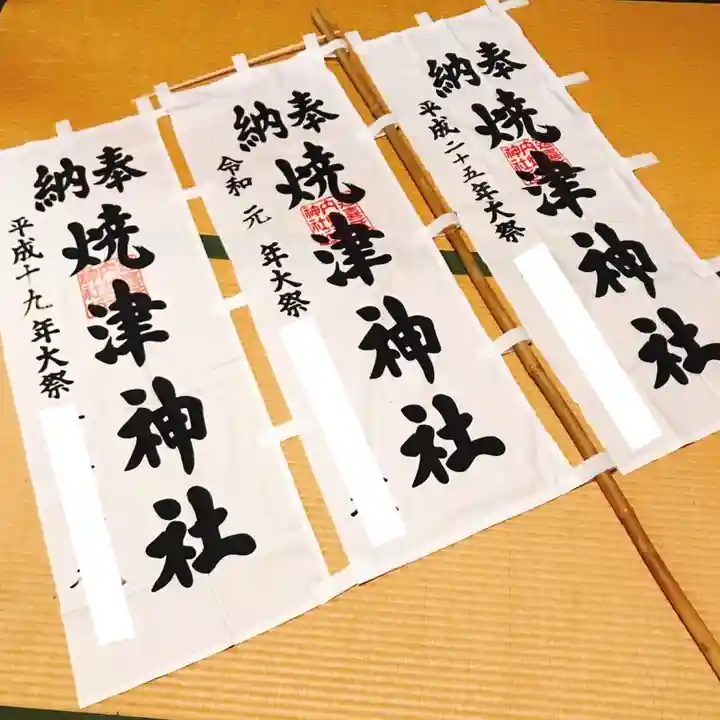 奉納
焼津神社
平成二十五年大祭
奉納
焼津神社
令和元年大祭
奉納
焼津神社
平成十九年大祭